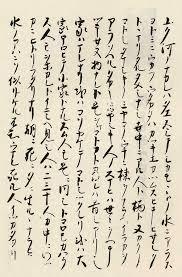 ユク河ノナカレハタエスシテシカモモトノ水ニアラス
ヨトミニウカフウタカタハカツキエカツムスヒテヒサシク
トヽマリタルタメシナシ世中ニアル人ト栖ト又カクノ
コトシタマシキノミヤコノウチニ棟ヲナラヘイラカヲ
アラソヘルタカキイヤシキ人ノスマヒハ世々ヲヘテ
ツキセヌ物ナレト是ヲマコトカト尋レハ昔シアリシ家ハ
マレナリ或ハコソヤケテコトシツクレリ或ハ大
家ホロヒテ小家トナルスム人モ是ニ同シトコロモカハラス
人モヲホカレトイニシヘ見シ人ハ二三十人カ中ニワツカニ
ヒトリフタリナリ朝ニ死ニ夕ニ生ルヽナラヒ
水ノアワニソ似リケル不知ウマレ死ル人イツカタヨリ